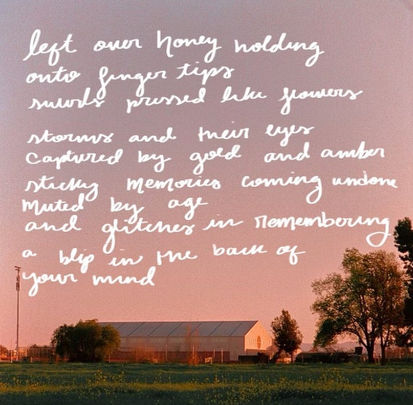 left over honey holding
onto finger tips
swirls pressed like flowers
storms and their eyes
captured by gold and amber
sticky memories coming undone
muted by age
and glitches in remembering
a blip in the back of
your mind